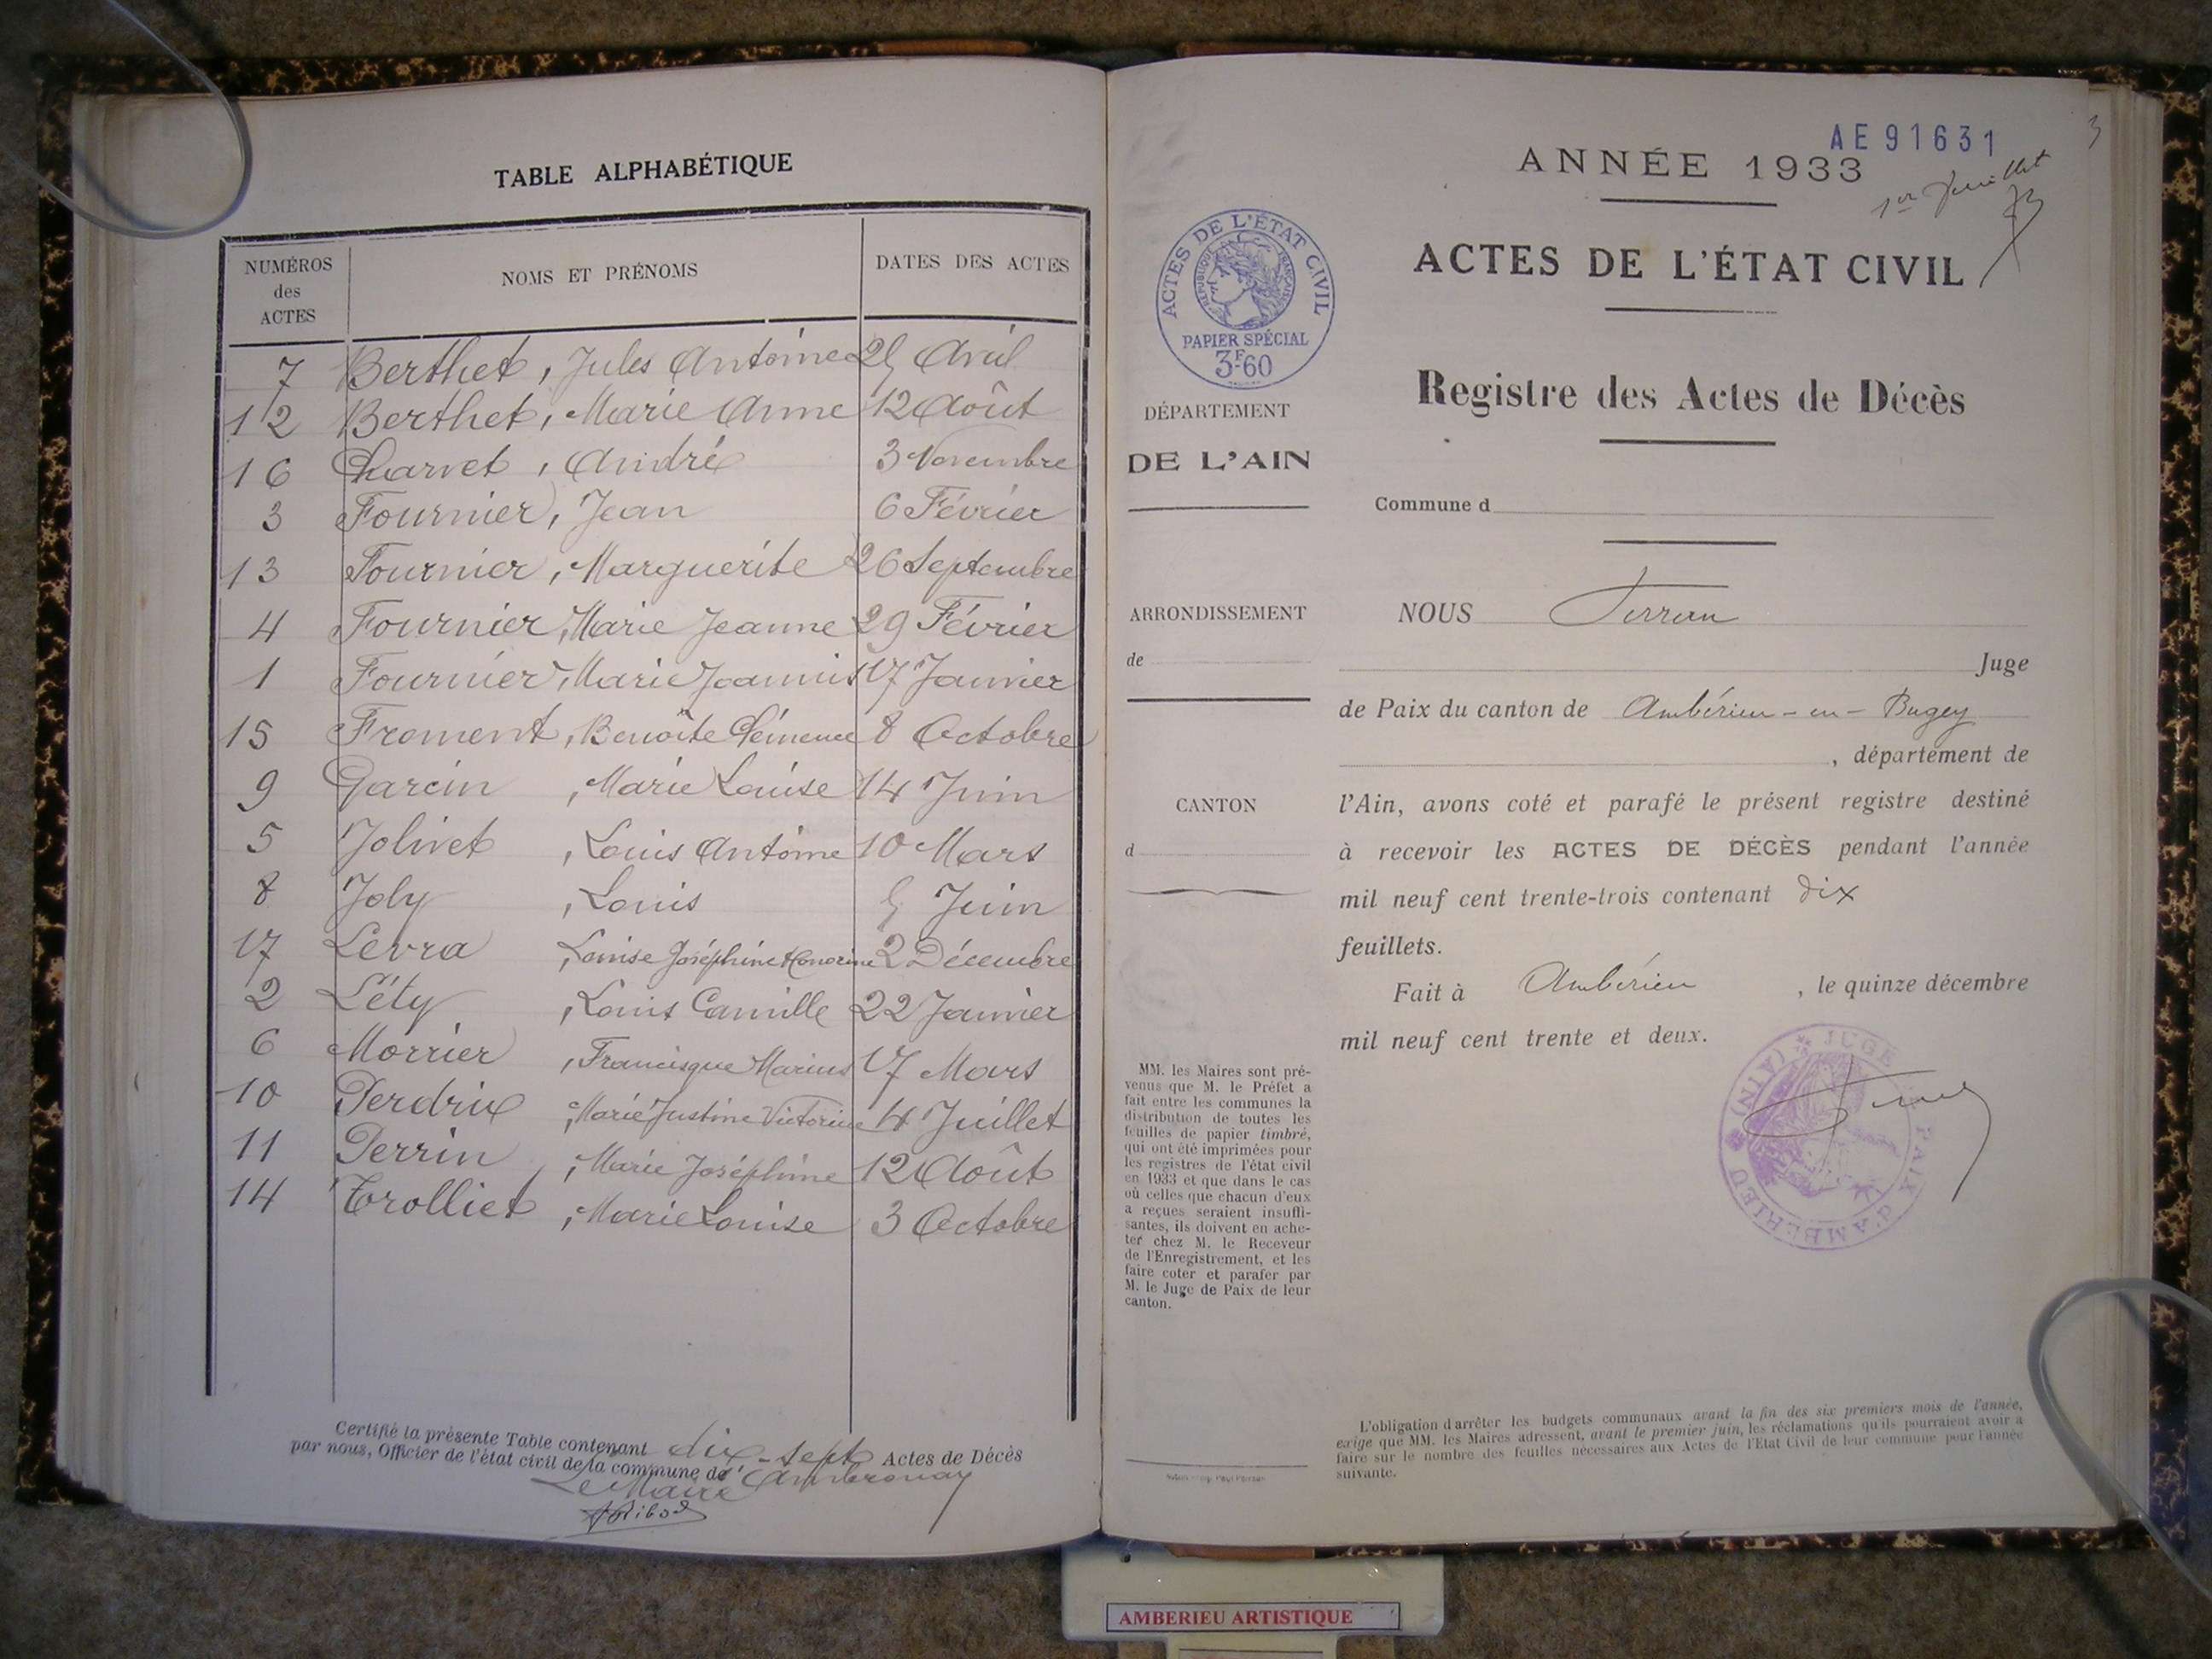 TABLE ALPHABÉTIQUE
NUMÉROS des ACTES NOMS ET PRÉNOMS DATES DES ACTES
7 Berthet, Jules Antoine 25 Avril
12 Berthet, Marie Anne 12 Août
16 Charvet, André 3 Novembre
3 Fournier, Jean 6 Février
13 Fournier, Marguerite 26 Septembre
4 Fournier, Marie Jeanne 29 Février
1 Fournier, Marie 17 Janvier
15 Froment, Benoîte Clémence 8 Octobre
9 Garcin, Marie Louise 14 Juin
5 Jolivet, Louis Antoine 10 Mars
8 Joly, Louis 5 Juin
17 Levra, Louise Joséphine Honorine 2 Décembre
2 Léty, Louis Camille 22 Janvier
6 Morrier, Francisque Marius 17 Mars
10 Perdrix, Marie Justine Victorine 4 Juillet
11 Perrin, Marie Joséphine 12 Août
14 Trolliet, Marie Louise 3 Octobre
Certifié la présente Table contenant dix-sept Actes de Décès
par nous, Officier de l'état civil de la commune de Ambronay
Le Maire
AE 91631
ANNÉE 1933
1er feuillet
ACTES DE L'ÉTAT CIVIL
ACTES DE L'ÉTAT CIVIL
RÉPUBLIQUE FRANÇAISE
PAPIER SPÉCIAL
3F60
Registre des Actes de Décès
DÉPARTEMENT
DE L'AIN
Commune d
ARRONDISSEMENT
de
NOUS
Juge
de Paix du canton de Ambérieu-en-Bugey
, département de
CANTON
d
l'Ain, avons coté et parafé le présent registre destiné
à recevoir les ACTES DE DÉCÈS pendant l'année
mil neuf cent trente-trois contenant dix
feuillets.
Fait à Ambérieu, le quinze décembre
mil neuf cent trente et deux.
JUGE PAIX d'AMBÉRIEU (AIN)
MM. les Maires sont pré-
venus que M. le Préfet a
fait entre les communes la
distribution de toutes les
feuilles de papier timbré,
qui ont été imprimées pour
les registres de l'état civil
en 1933 et que dans le cas
où celles que chacun d'eux
a reçues seraient insuffi-
santes, ils doivent en ache-
ter chez M. le Receveur
de l'Enregistrement, et les
faire coter et parafer par
M. le Juge de Paix de leur
canton.
L'obligation d'arrêter les budgets communaux avant la fin des six premiers mois de l'année,
exige que MM. les Maires adressent, avant le premier juin, les réclamations qu'ils pourraient avoir à
faire sur le nombre des feuilles nécessaires aux Actes de l'Etat Civil de leur commune pour l'année
suivante.
AMBERIEU ARTISTIQUE